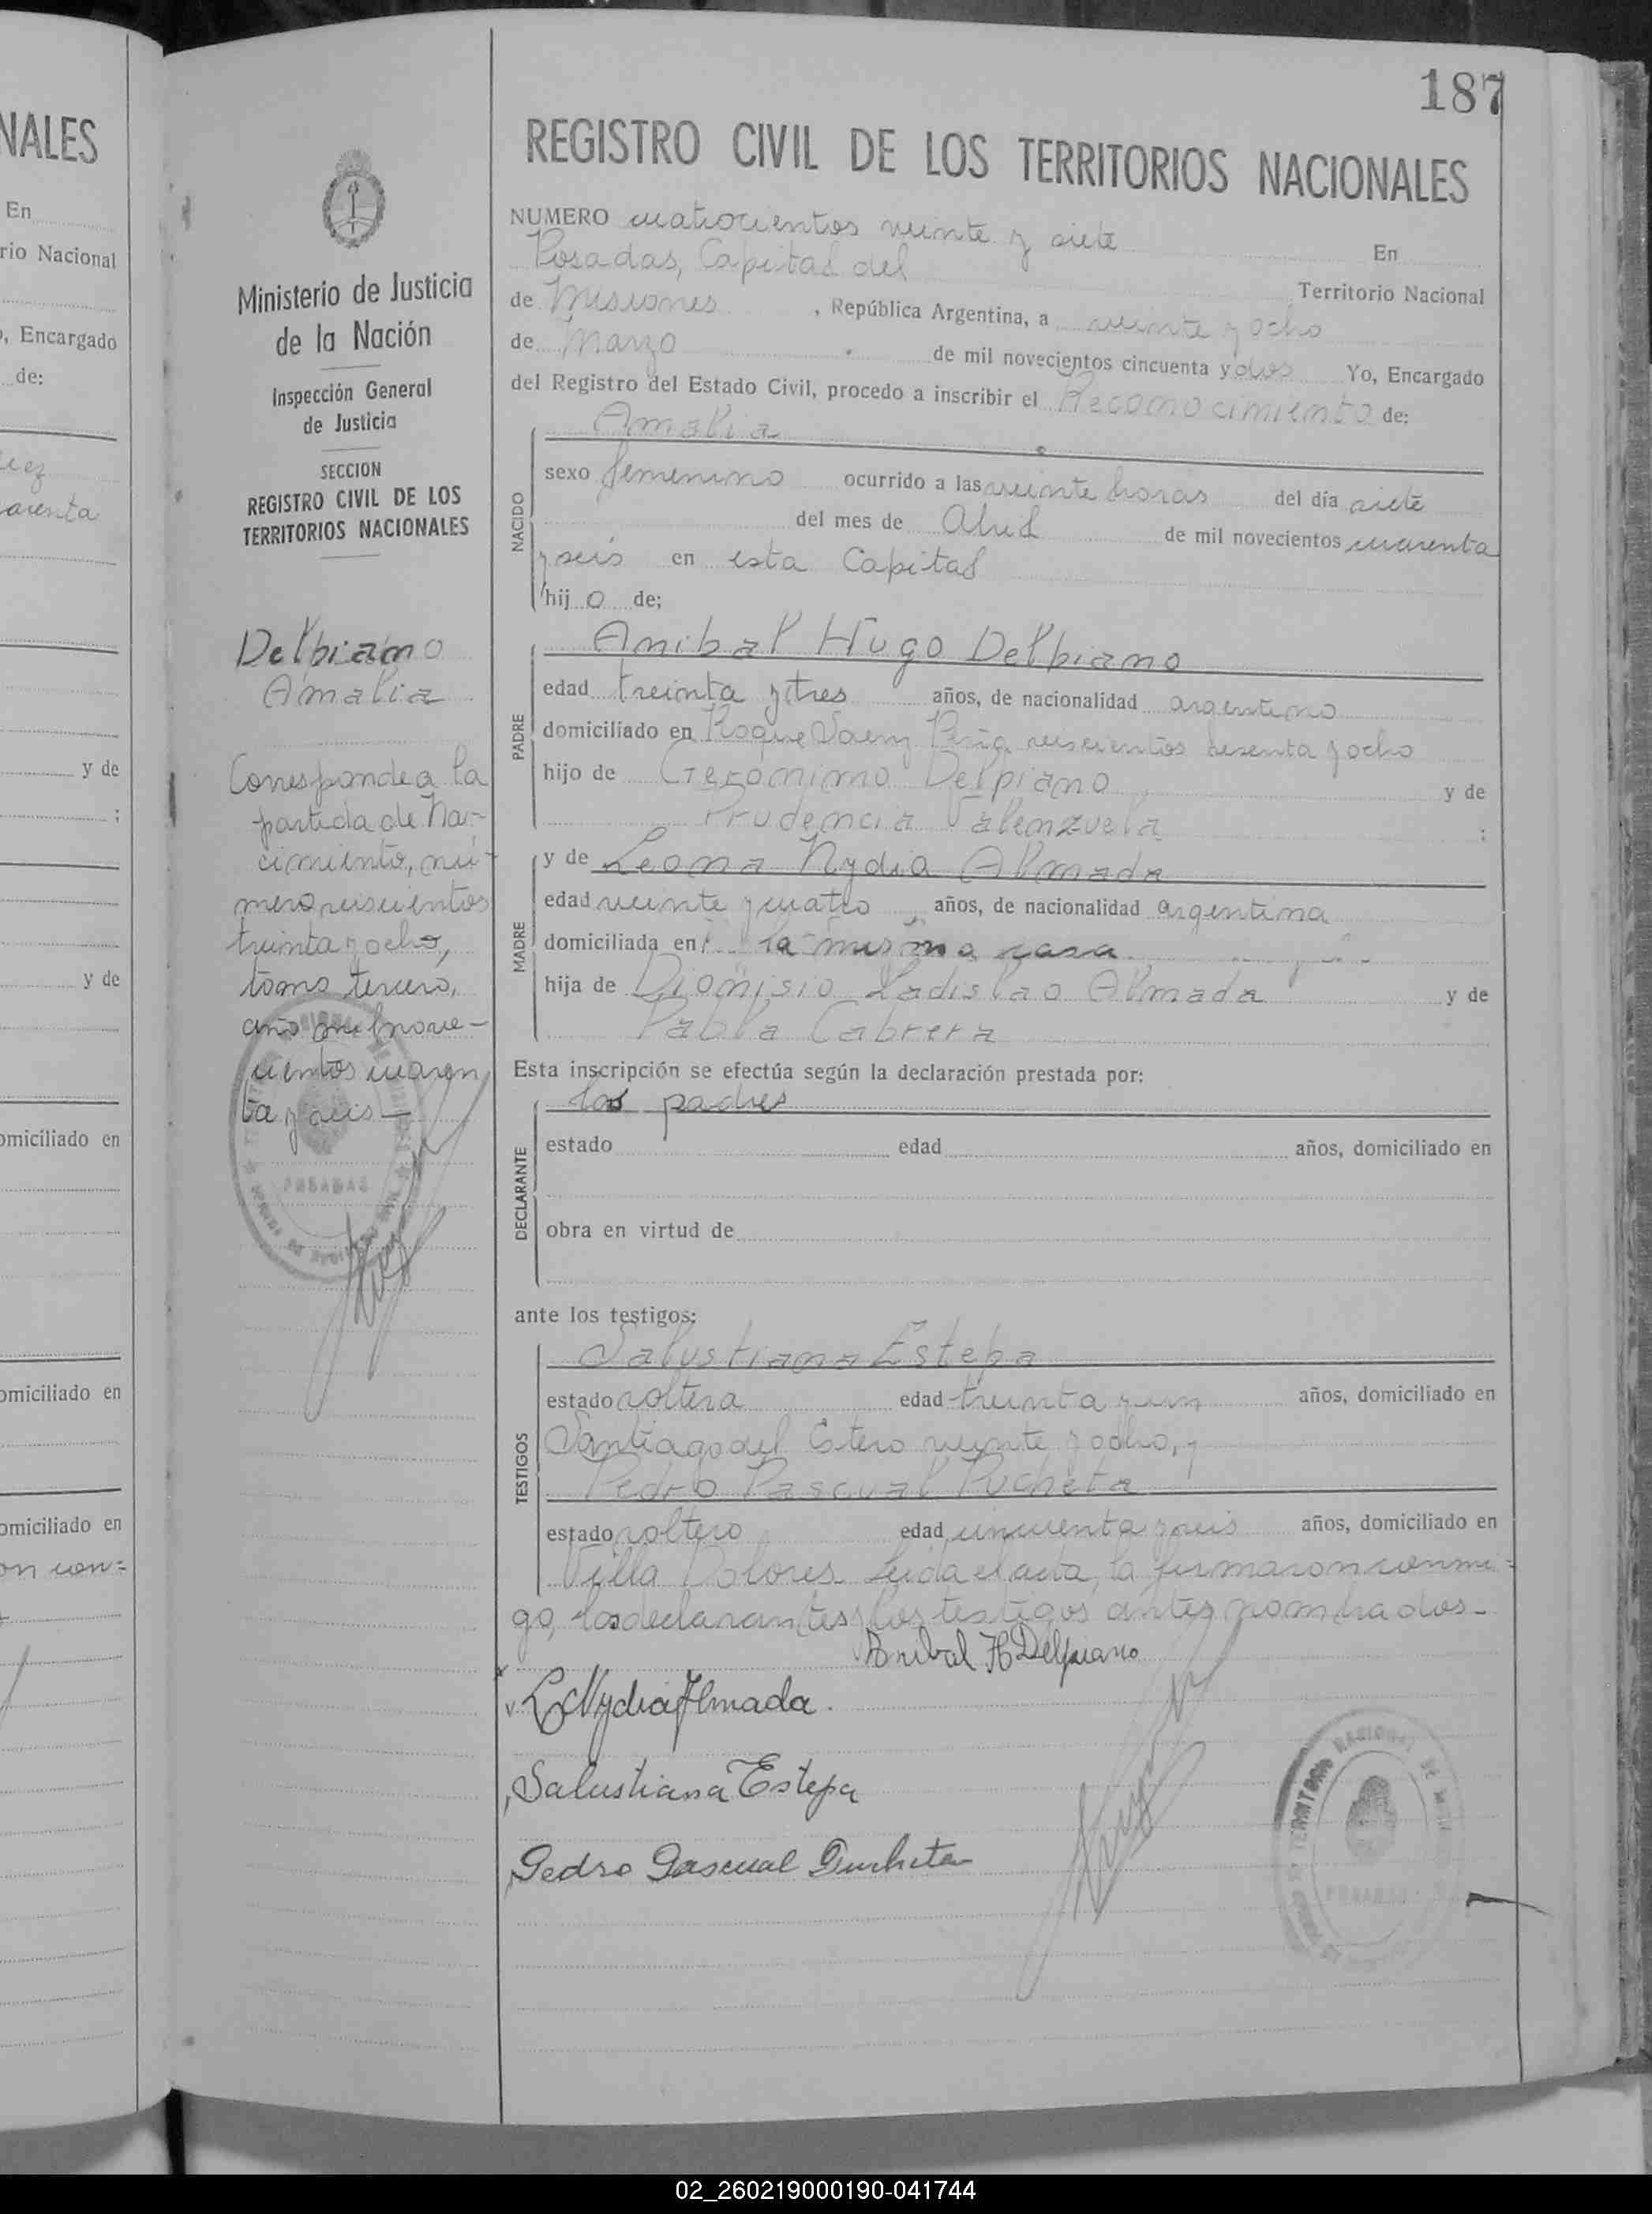 NALES
En
rio Nacional
o, Encargado
de:
arenta
y de
;
y de
omiciliado en
omiciliado en
omiciliado en
on con=
Ministerio de Justicia
de la Nación
Inspección General
de Justicia
SECCION
REGISTRO CIVIL DE LOS
TERRITORIOS NACIONALES
Delpiano
Amalia
Corresponde a la
partida de Na-
cimiento, nú-
mero seiscientos
treinta y ocho,
tomo tercero,
año mil nove-
cientos cuaren
ta y seis-
POSADAS
187
REGISTRO CIVIL DE LOS TERRITORIOS NACIONALES
NUMERO cuatrocientos veinte y siete En
Posadas, Capital del Territorio Nacional
de Misiones, República Argentina, a veinte y ocho
de Marzo de mil novecientos cincuenta y dos Yo, Encargado
del Registro del Estado Civil, procedo a inscribir el Reconocimiento de:
NACIDO
Amalia
sexo femenino ocurrido a las veinte horas del día siete
del mes de Abril de mil novecientos cuarenta
y seis en esta Capital
hij o de;
PADRE
Anibal Hugo Delpiano
edad treinta y tres años, de nacionalidad argentino
domiciliado en Roque Saenz Peña seiscientos sesenta y ocho
hijo de Gerónimo Delpiano y de
Prudencia Valenzuela ;
MADRE
y de Leona Nydia Almada
edad veinte y cuatro años, de nacionalidad argentina
domiciliada en la misma casa
hija de Dionisio Ladislao Almada y de
Pabla Cabrera
Esta inscripción se efectúa según la declaración prestada por:
DECLARANTE
los padres
estado edad años, domiciliado en
obra en virtud de
ante los testigos:
TESTIGOS
Salustiana Estepa
estado soltera edad treinta y un años, domiciliado en
Santiago del Estero veinte y ocho, y
Pedro Pascual Pucheta
estado soltero edad cincuenta y seis años, domiciliado en
Villa Dolores. Leida el acta, la firmaron conmi=
go, los declarantes y los testigos antes nombrados-
Anibal H Delpiano
L Nydia Almada.
Salustiana Estepa
Pedro Pascual Pucheta
TERRITORIO NACIONAL DE
POSADAS
02_260219000190-041744